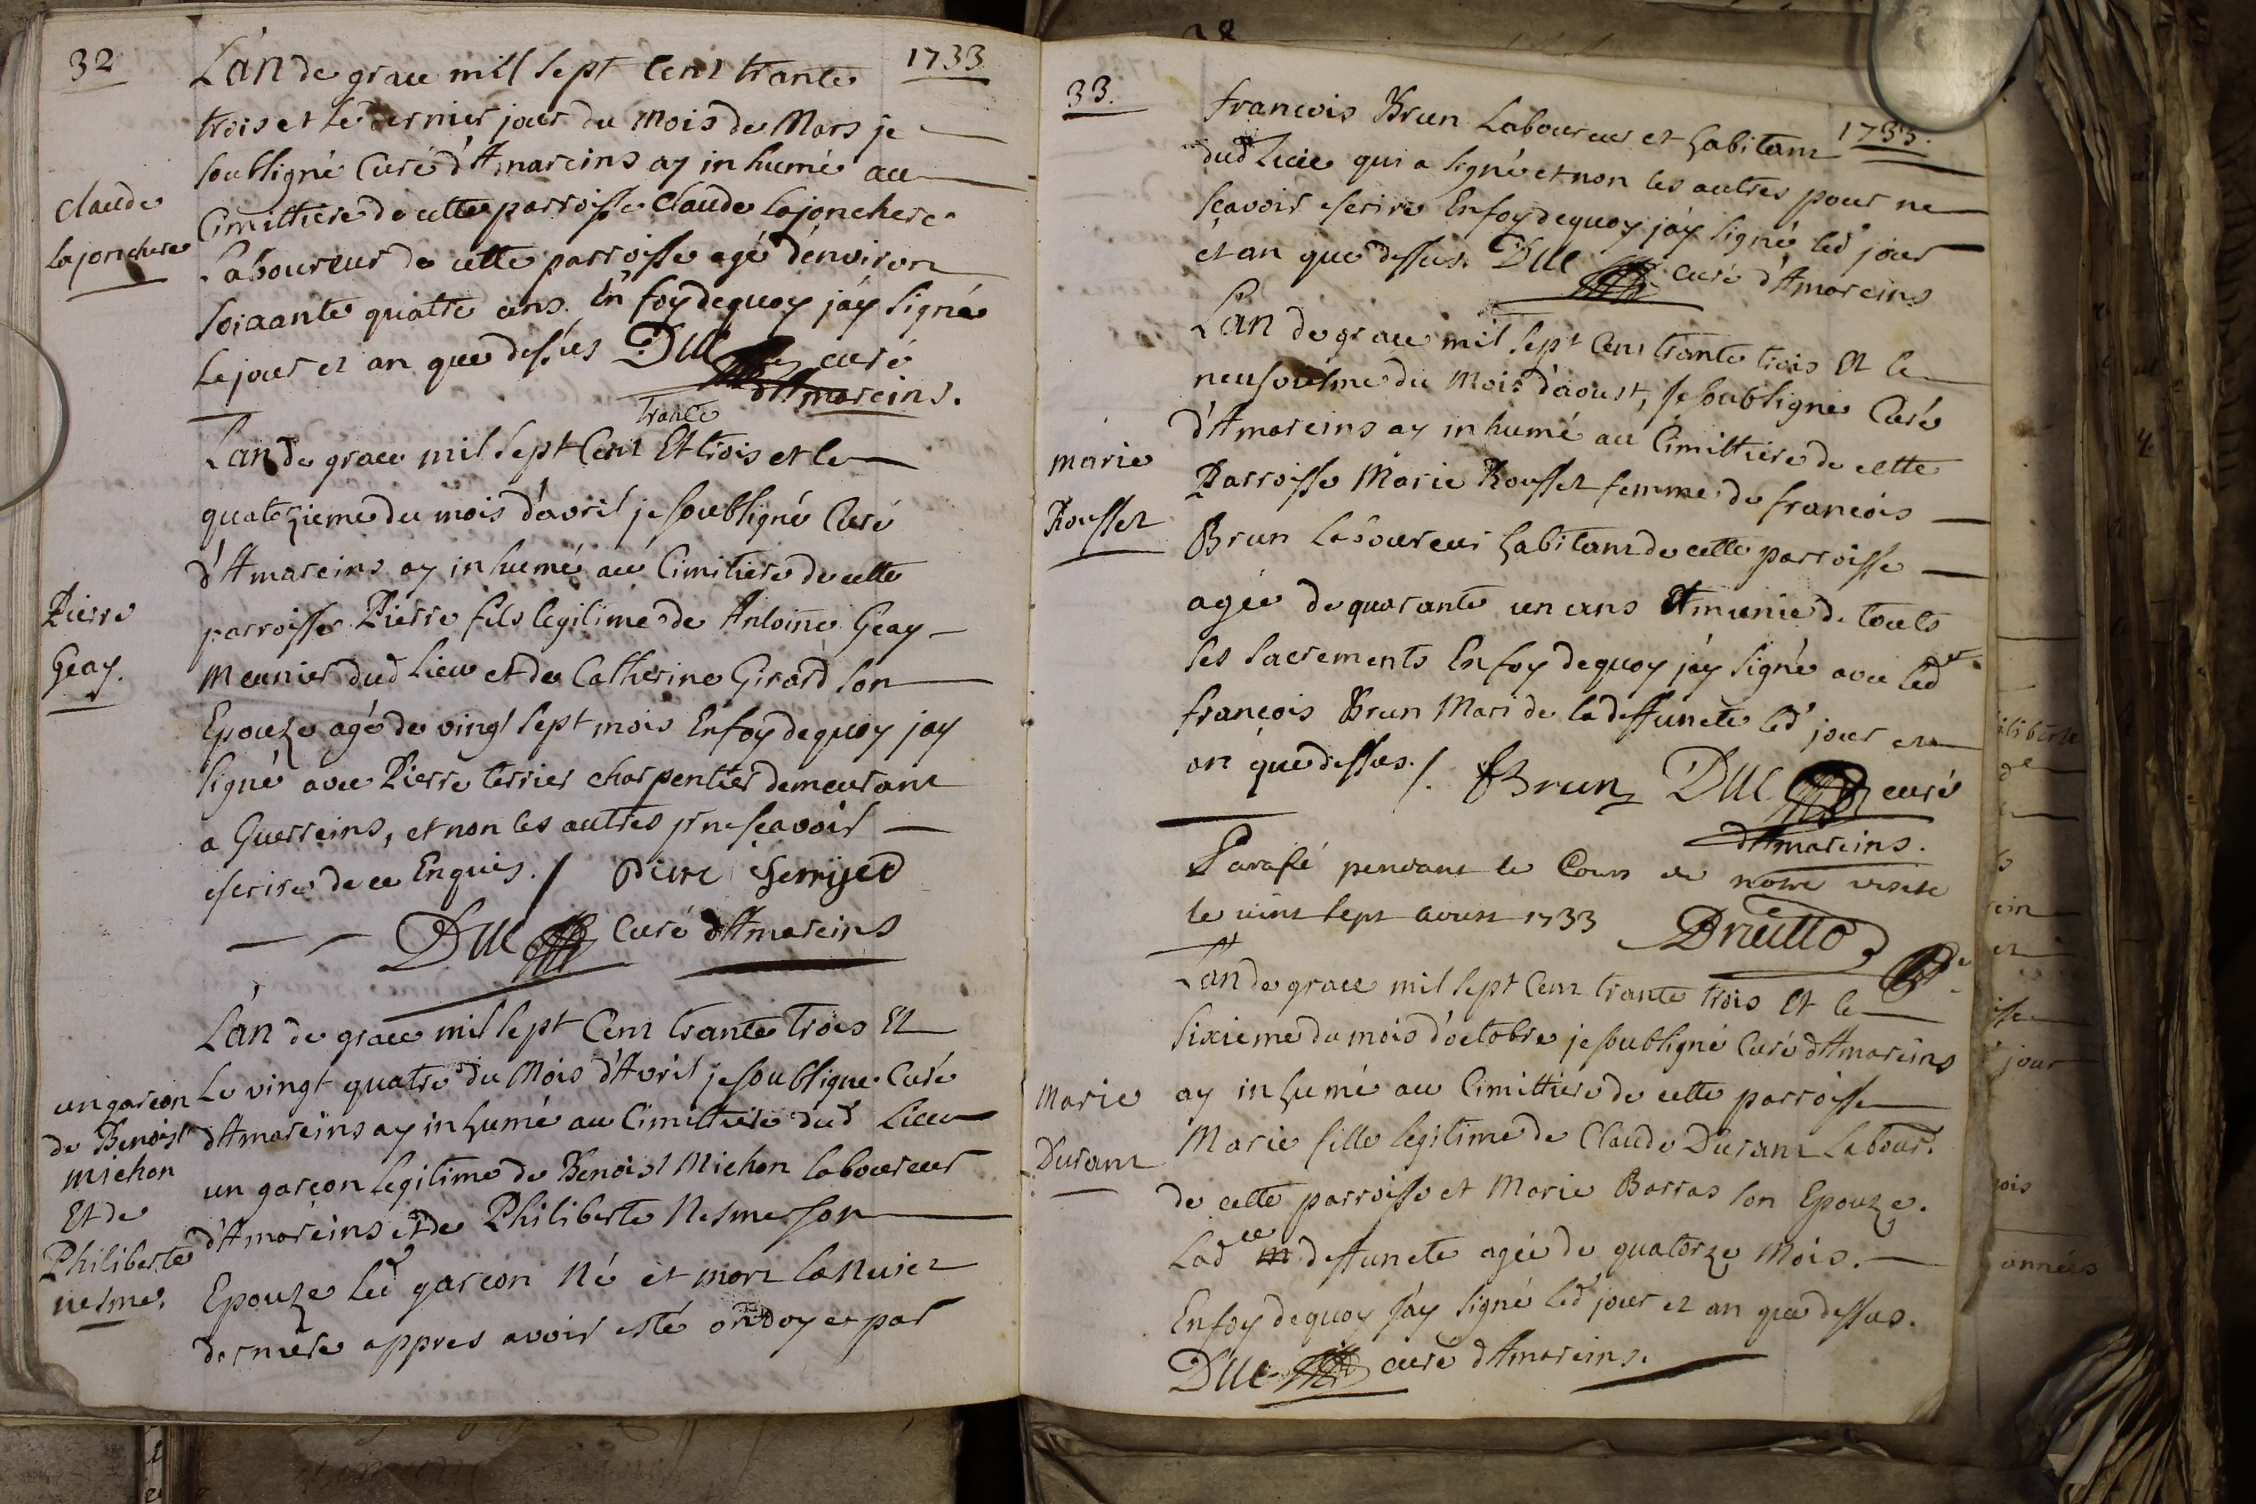 32
1733
L'an de grace mill sept Cent trante
trois et le dernier jour du mois de Mars je
soubsigné Curé d'Amareins ay inhumé au
Claude
Cimittiere de cette parroisse Claude Lajonchere
Lajonchere
Laboureur de cette parroisse agé d'environ
soixante quatre ans. En foy de quoy j'ay signé
le jour et an que dessus Duc curé
d'Amareins.
trante
L'an de grace mil sept Cent Et trois et le
quatorzieme du mois d'avril je soubsigné Curé
d'Amareins ay inhumé au Cimitiere de cette
Pierre
parroisse Pierre fils legitime de Antoine Geay
Geay.
Meunier dud lieu et de Catherine Girard son
Epouze agé de vingt sept mois En foy de quoy jay
signé avec Pierre terrier charpentier demeurant
a Guerreins, et non les autres pr ne sçavoir
escrire de ce Enquis. / Piere Terriyer
Duc Curé d'Amareins
L'an de grace mil sept Cent trante trois Et
Le vingt quatre du Mois d'Avril je soubsigné Curé
un garcon
d'Amareins ay inhumé au Cimittiere dud Lieu
de Benoist
un garçon legitime de Benoist Michon laboureur
Michon
Et de
d'Amareins et de Philiberte Nesme son
Philiberte
Epouze led garcon Né et mort la Nuict
nesme.
derniere appres avoir esté ondoye par
33.
1733.
francois Brun Laboureur et habitant
dud Lieu qui a signé et non les autres pour ne
sçavoir escrire En foy de quoy j'ay signé led jour
et an que dessus. Duc curé d'Amareins
L'an de grace mil sept Cent trante trois Et le
neufvieme du Mois d'aoust, je soubsigné Curé
d'Amareins ay inhumé au Cimittiere de cette
marie
Parroisse Marie Rousset femme de francois
Rousset
Brun laboureur habitant de cette parroisse
agée de quarante un ans Et munie de touts
les sacrements En foy de quoy j'ay signé avec led
françois Brun Mari de la deffuncte led jour et
an que dessus. /. fBrun Duc curé
d'Amareins.
Parafé pendant le Cours de notre visite
le vint sept aoust 1733
L'an de grace mil sept Cent trante trois Et le
sixieme du mois d'octobre je soubsigné Curé d'Amareins
Marie
ay inhumé au Cimittiere de cette parroisse
Durant
Marie fille legitime de Claude Durant Labour.
de cette parroisse et Marie Barras son Epouze.
Lad deffuncte agée de quatorze Mois.
En foy de quoy j'ay signé led jour et an que dessus.
Duc curé d'Amareins.